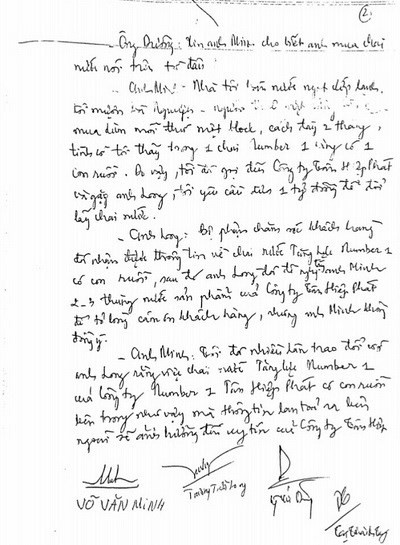 2
- Ông Dưỡng: Xin anh Minh cho biết anh mua chai
nước nói trên từ đâu
- Anh Minh - Nhà tôi bán nước ngọt
tôi mượn bà Nguyệt - người
mua dùm mỗi thứ một block, cách đây 2 tháng,
tình cờ tôi thấy trong 1 chai Number 1 cũng có 1
con ruồi. Do vậy, tôi đã gọi đến Công ty Tân Hiệp Phát
và gặp anh Long, tôi yêu cầu đưa 1 tỷ đồng để đổi
lấy chai nước.
- Anh Long: Bộ phận chăm sóc khách hàng
đã nhận được thông tin về chai nước Tăng lực Number 1
có con ruồi, sau đó anh Long đã đề nghị anh Minh
2-3 thùng nước sản phẩm của Công ty Tân Hiệp Phát
để tỏ lòng cảm ơn khách hàng, nhưng anh Minh không
đồng ý.
- Anh Minh: Tôi đã nhiều lần trao đổi với
anh Long rằng việc chai nước Tăng lực Number 1
của Công ty Number 1 Tân Hiệp Phát có con ruồi
bên trong như vậy mà thông tin lan toả ra bên
ngoài sẽ ảnh hưởng đến uy tín của Công ty Tân Hiệp
VÕ VĂN MINH
Trương Tiểu Long